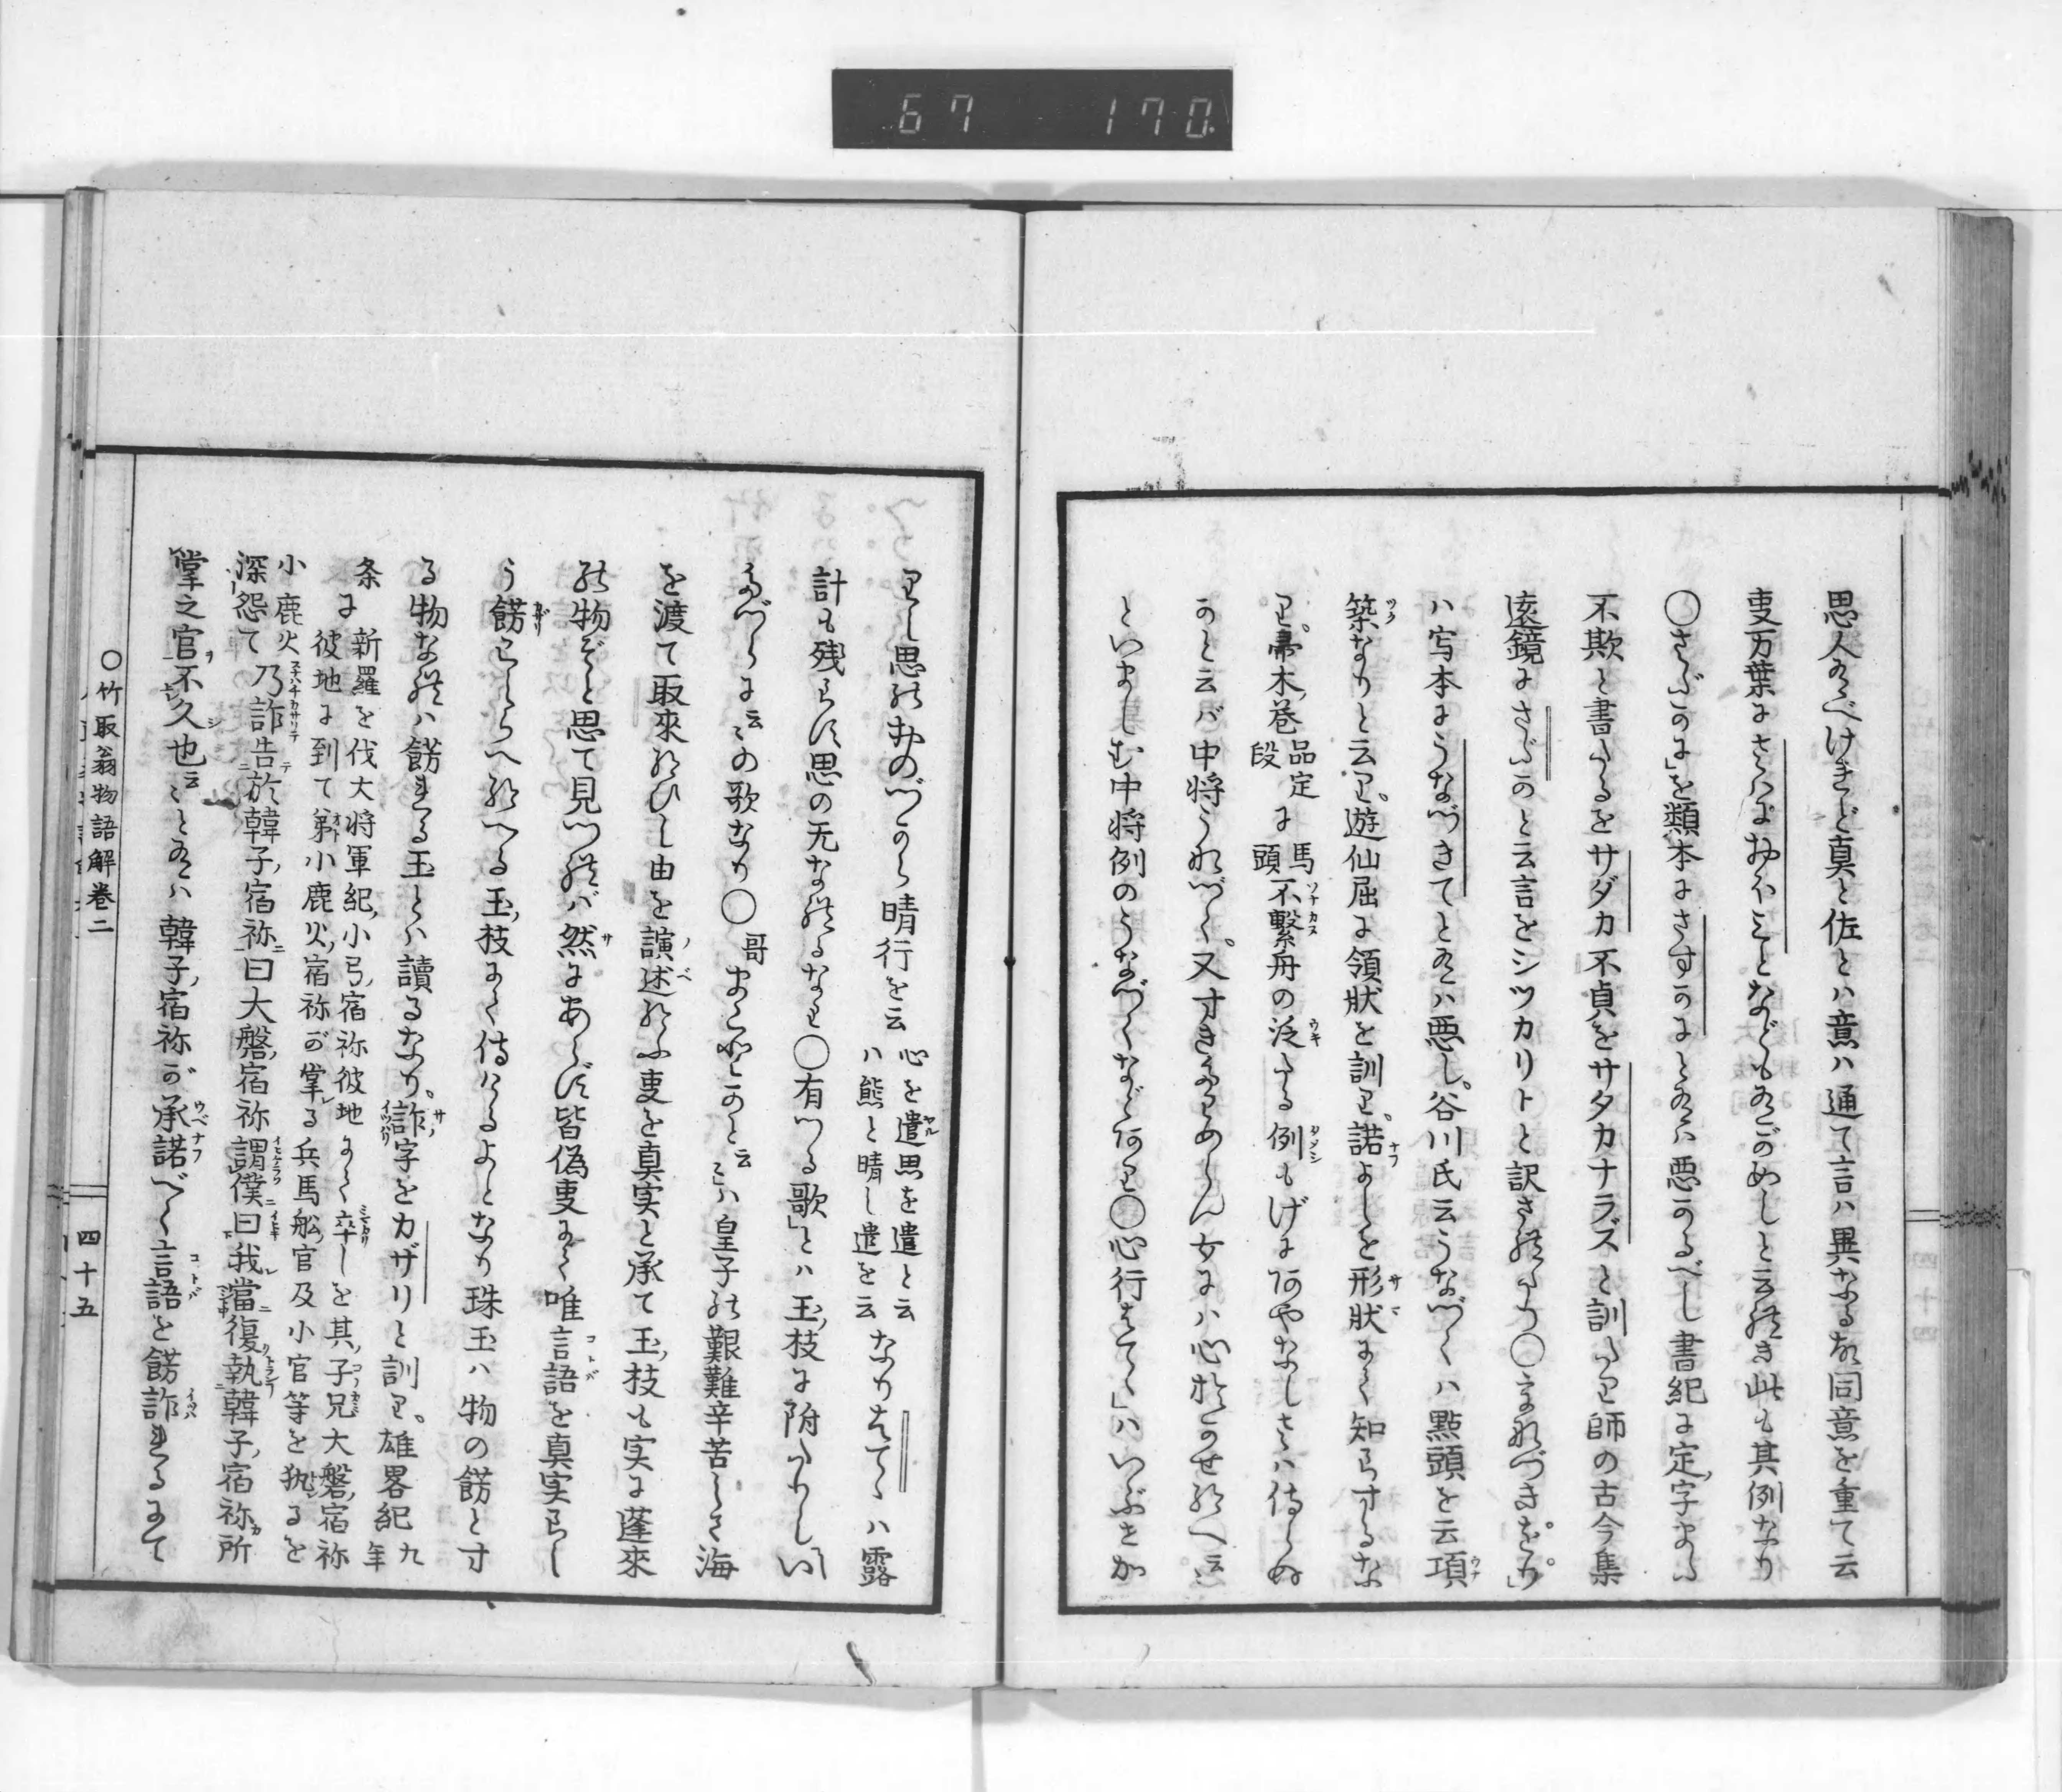 67 170
思人有べけきど真と佐とハ意ハ通て言ハ異なる故同意を重て云
叓万葉にさらにおほミとなども有ごめしと云れき此も其例なり
〇さぶかに」を類本にさすかにと有ハ悪かるべし書紀に定字また
不欺と書たるをサダカ不貞をサタカナラズと訓たり師の古今集
遠鏡にさぶかと云言をシツカリトと訳されたり〇うなづきをり」
ハ写本にうなづきてと有ハ悪し。谷川氏云うなづくハ點頭を云項
築なりと云り。遊仙屈に領状を訓り。諾よしを形状にて知らするな
り。帚木巻品定段に馬頭不繫舟の泛たる例もげにあやなしさハ侍らぬ
かと云バ中将うなづく。又すきたわめらん女にハ心おかせ給へ云〻
といましむ中将例のうなづくなどあり〇心行はてゝ」ハいぶせか
りし思のおのづから晴行を云心を遣思を遣と云ハ熊と晴し遣を云なりはてゝハ露
計も残らず思の无なれるなり〇有つる歌」とハ玉枝に附たりしい
たづらに云〻の歌なり〇哥まことかと云〻ハ皇子の艱難辛苦して海
を渡て取來給ひし由を演述給ふ叓を真実と承て玉枝も実に蓬來
の物ぞと思て見つれバ然にあらず皆偽叓にて唯言語を真実らし
う餝こしらへ給へる玉枝にて侍けるよとなり珠玉ハ物の餝とす
る物なれハ餝れる玉とハ讀るなり。詐字をカザリと訓り。雄畧紀九年
条に新羅を伐大将軍紀小弓宿祢彼地にて卒しを其子兄大磐宿祢
彼地に到て弟小鹿火宿祢が掌る兵馬舩官及小官等を執るを
小鹿火
深怨て乃詐告於韓子宿祢曰大磐宿祢謂僕曰我當復執韓子宿祢所
掌之官不久也云〻と有ハ韓子宿祢が承諾べく言語を餝詐れるにて
〇竹取翁物語解巻二
四十五